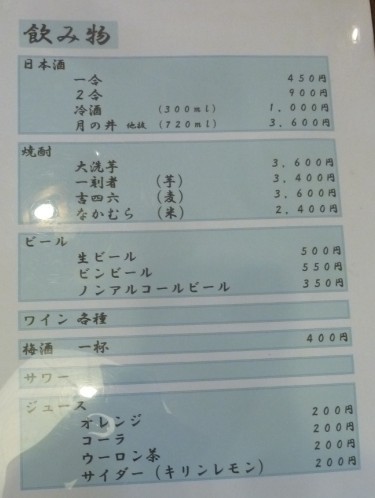 飲み物
日本酒
一合 450円
2合 900円
冷酒 (300ml) 1,000円
月の井 他銘 (720ml) 3,600円
焼酎
大洗芋 3,600円
一刻者 (芋) 3,400円
吉四六 (麦) 3,600円
なかむら (米) 2,400円
ビール
生ビール 500円
ビンビール 550円
ノンアルコールビール 350円
ワイン 各種
梅酒 一杯 400円
サワー
ジュース
オレンジ 200円
コーラ 200円
ウーロン茶 200円
サイダー (キリンレモン) 200円